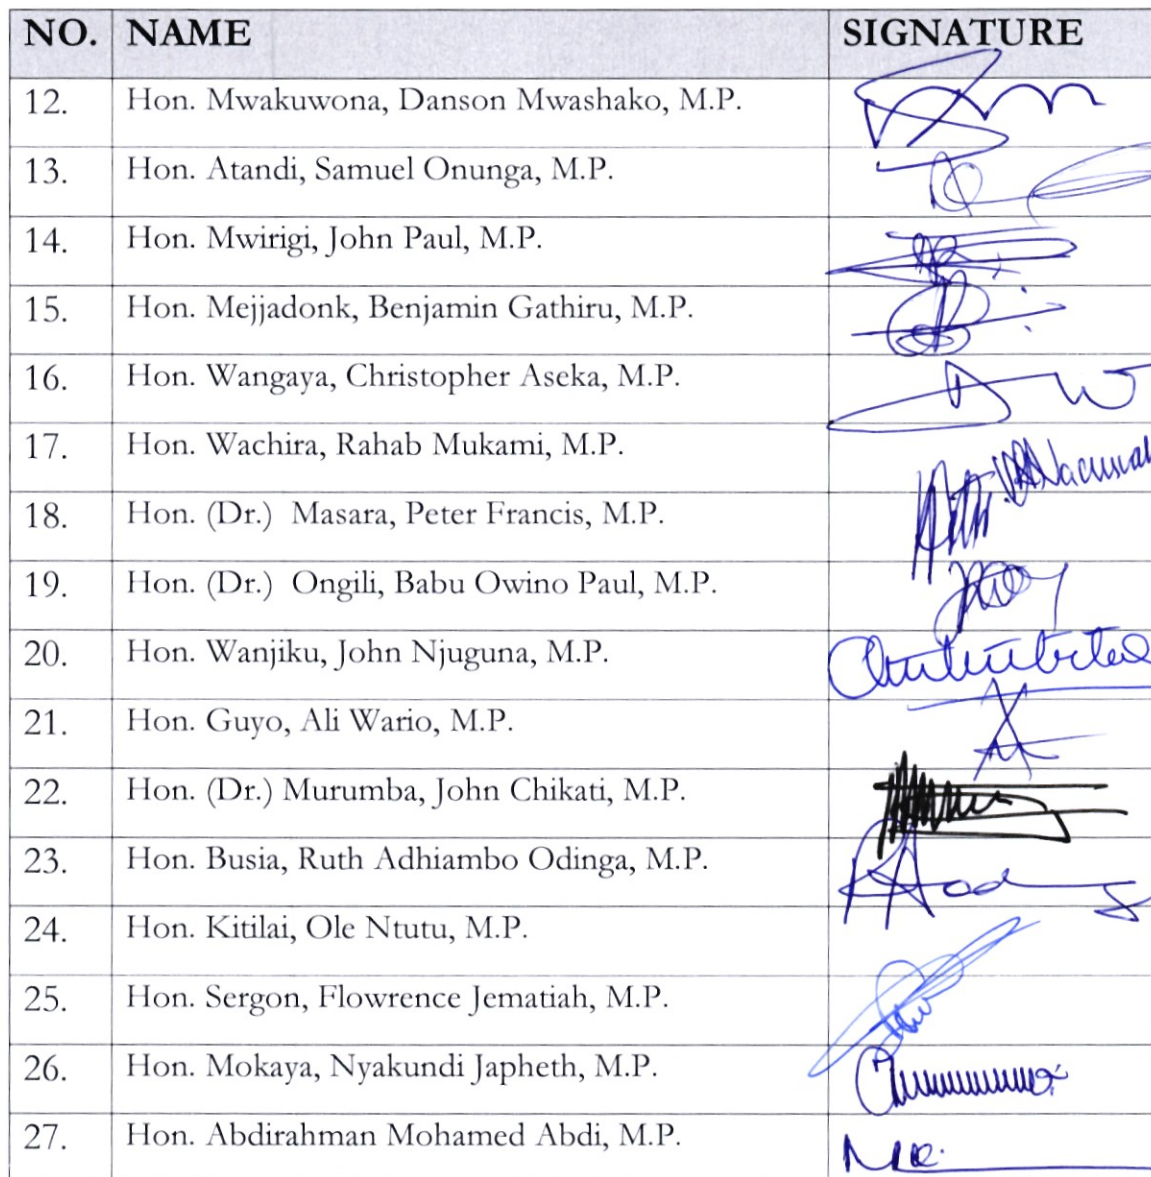 NO. NAME SIGNATURE
12. Hon. Mwakuwona, Danson Mwashako, M.P.
13. Hon. Atandi, Samuel Onunga, M.P.
14. Hon. Mwirigi, John Paul, M.P.
15. Hon. Mejjadonk, Benjamin Gathiru, M.P.
16. Hon. Wangaya, Christopher Aseka, M.P.
17. Hon. Wachira, Rahab Mukami, M.P.
18. Hon. (Dr.) Masara, Peter Francis, M.P.
19. Hon. (Dr.) Ongili, Babu Owino Paul, M.P.
20. Hon. Wanjiku, John Njuguna, M.P.
21. Hon. Guyo, Ali Wario, M.P.
22. Hon. (Dr.) Murumba, John Chikati, M.P.
23. Hon. Busia, Ruth Adhiambo Odinga, M.P.
24. Hon. Kitilai, Ole Ntutu, M.P.
25. Hon. Sergon, Flowrence Jematiah, M.P.
26. Hon. Mokaya, Nyakundi Japheth, M.P.
27. Hon. Abdirahman Mohamed Abdi, M.P.